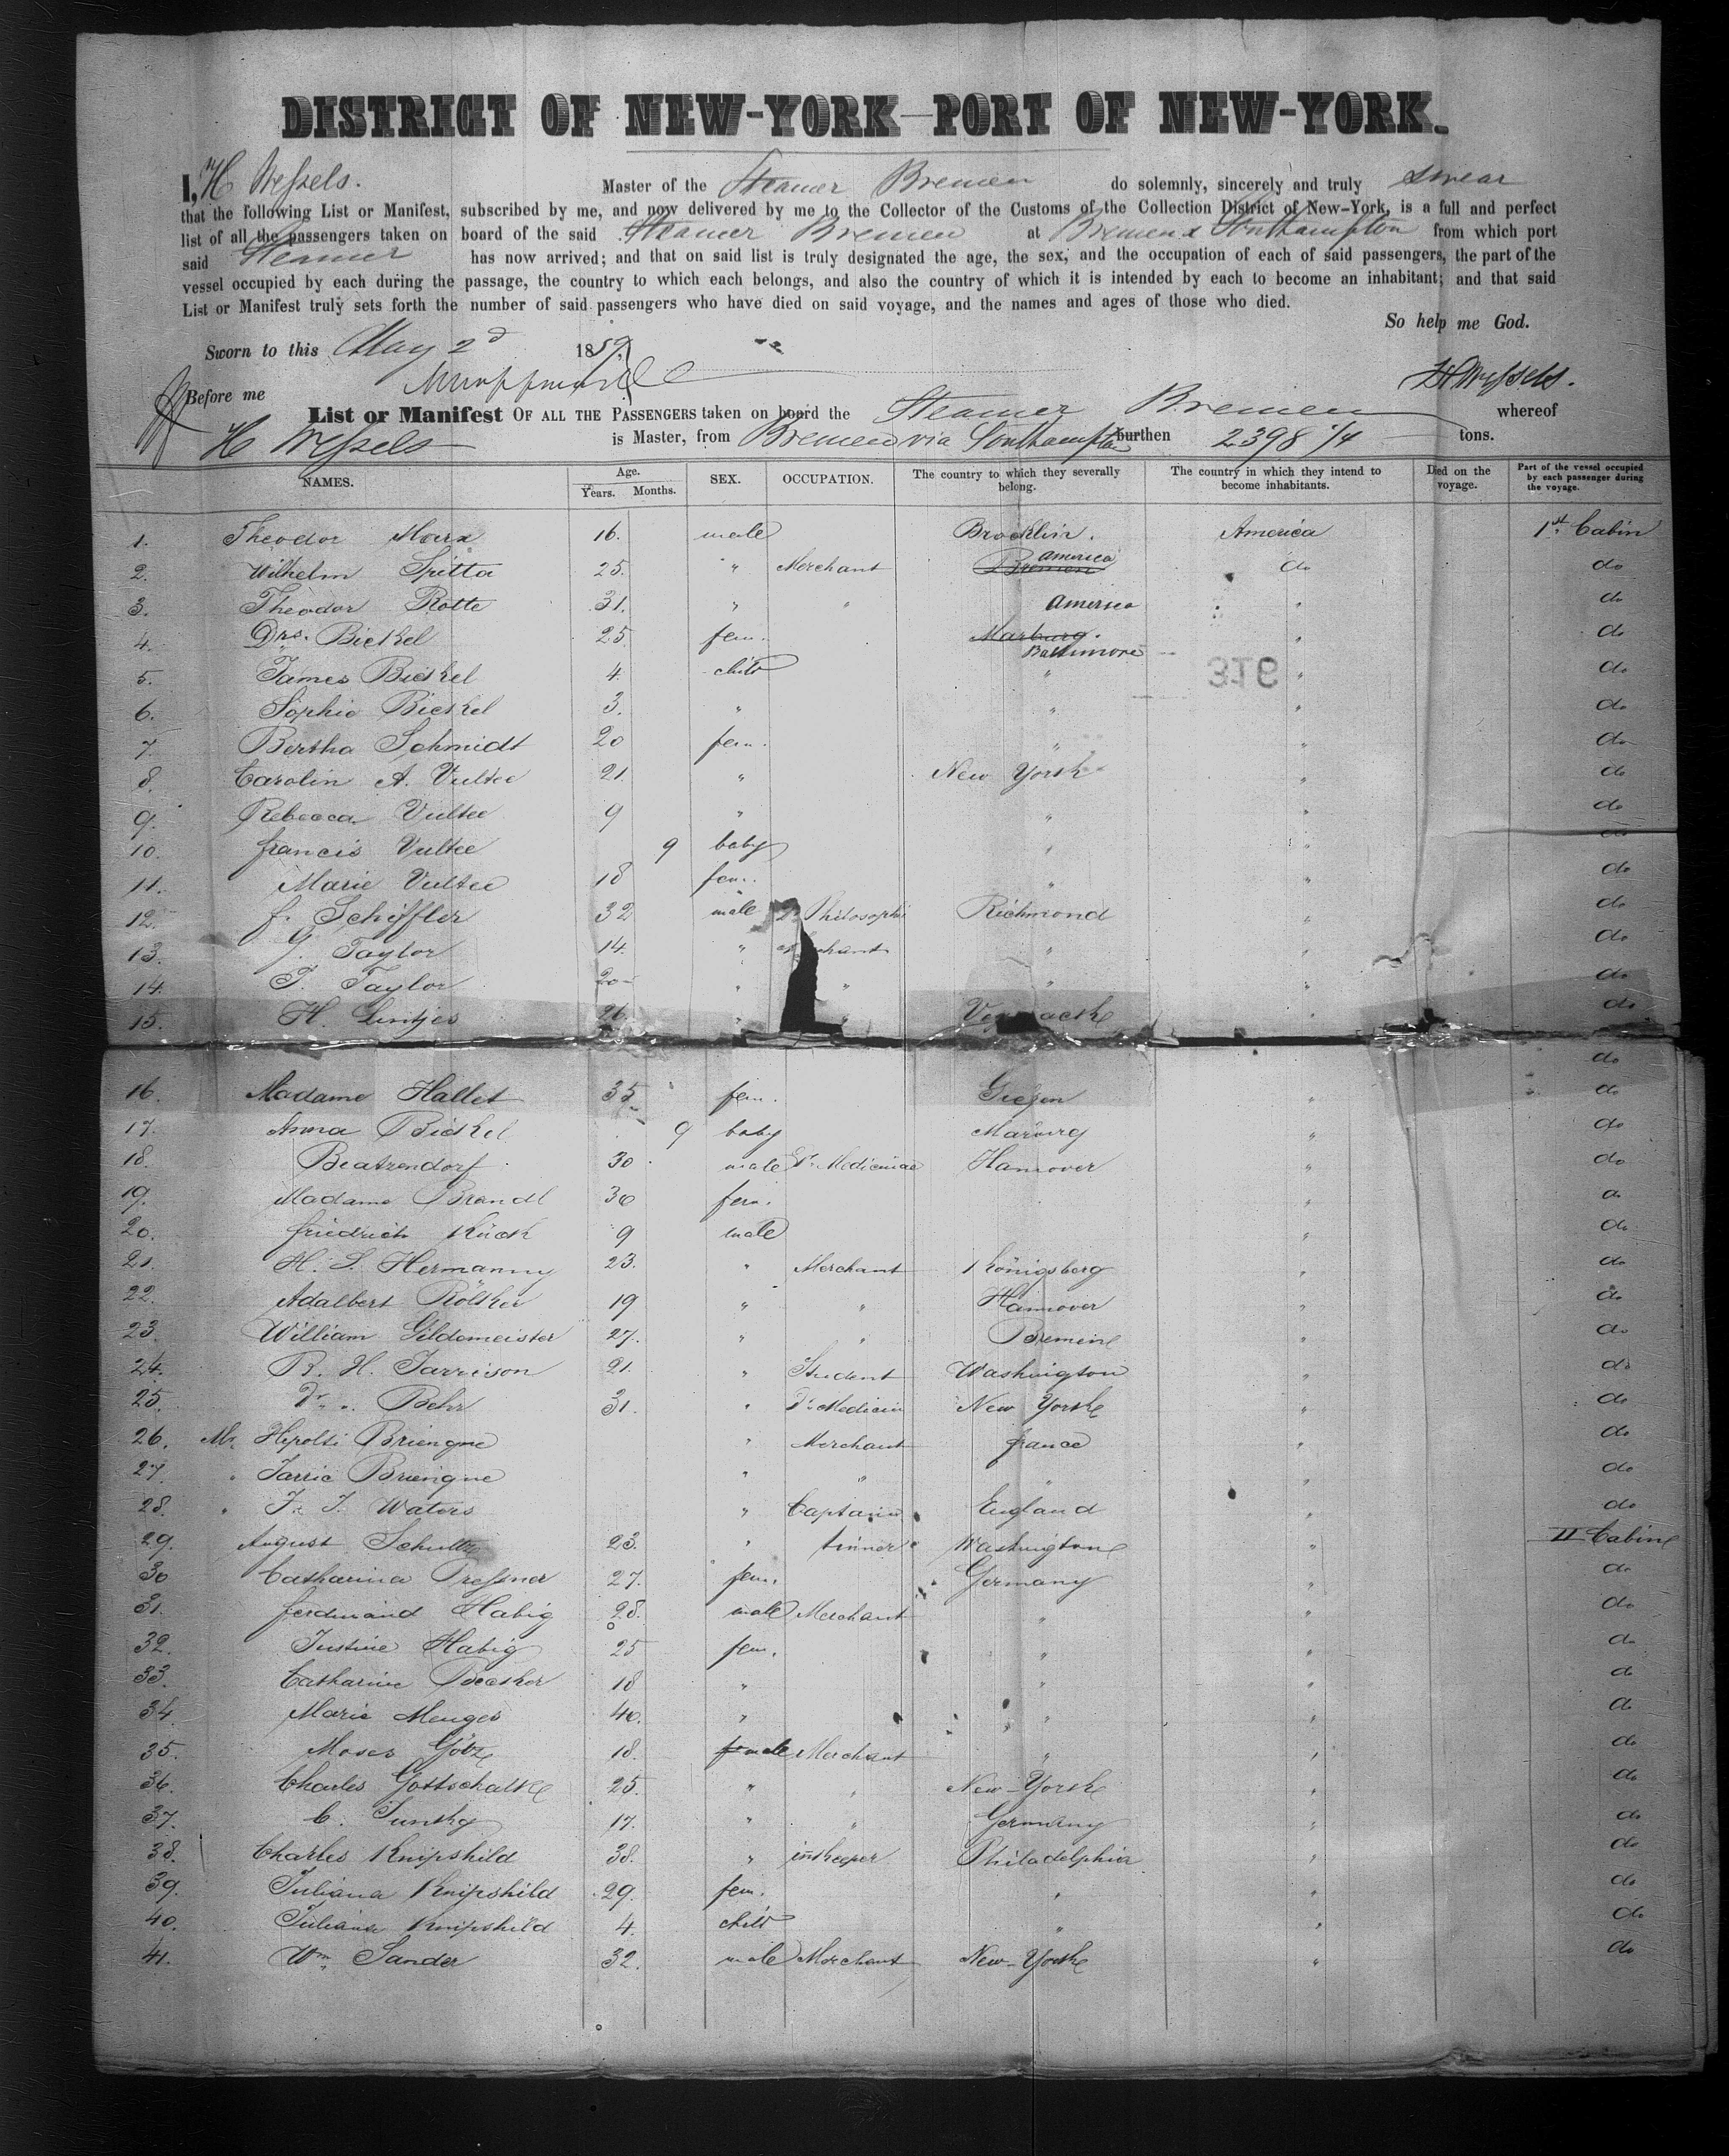 DISTRICT OF NEW-YORK—PORT OF NEW-YORK.
I, H Weſsels. Master of the Steamer Bremen do solemnly, sincerely and truly swear
that the following List or Manifest, subscribed by me, and now delivered by me to the Collector of the Customs of the Collection District of New-York, is a full and perfect
list of all the passengers taken on board of the said Steamer Bremen at Bremen & Southampton from which port
said Steamer has now arrived; and that on said list is truly designated the age, the sex, and the occupation of each of said passengers, the part of the
vessel occupied by each during the passage, the country to which each belongs, and also the country of which it is intended by each to become an inhabitant; and that said
List or Manifest truly sets forth the number of said passengers who have died on said voyage, and the names and ages of those who died.
So help me God.
Sworn to this May 2d 1859
Before me H Weſsels.
List or Manifest OF ALL THE PASSENGERS taken on board the Steamer Bremen whereof
H Weſsels is Master, from Bremen via Southampton burthen 2398 1/4 tons.
NAMES. Age. Years. Months. SEX. OCCUPATION. The country to which they severally belong. The country in which they intend to become inhabitants. Died on the voyage. Part of the vessel occupied by each passenger during the voyage.
1. Theodor Marx 16. male Brocklin. America 1st Cabin
2. Wilhelm Spitta 25. " Merchant Bremen america do do
3. Theodor Rotte 31. " " america " do
4. Drs. Bickel 25 fem. Marburg. Baltimore " do
5. James Bickel 4. child " " do
316
6. Sophie Bickel 3. " " " do
7. Bertha Schmidt 20 fem. " " do
8. Carolin A. Vultee 21. " New York " do
9. Rebecca Vultee 9 " " " do
10. Francis Vultee 9 baby " " do
11. Marie Vultee 18 fem. " " do
12. F. Schiffler 32 male Philosophi Richmond " do
13. G. Taylor 14. " " " do
14. T. Taylor 20 " " " " do
15. H. Lintjes 26 " " " do
do
16. Madame Hallet 35 fem. Gieſsen " do
17. Anna Bickel 9 baby Marburg " do
18. Beatzendorf 30 male Dr. Medicinae Hannover " do
19. Madame Brandl 36 fem. " do
20. Friedrich Kück 9 male " do
21. H. S. Hermanny 23. " Merchant Königsberg " do
22. Adalbert Rölker 19 " " Hannover " do
23. William Gildemeister 27. " " Bremen " do
24. B. H. Jarrison 21. " Student Washington " do
25. Dr. Behr 31. " Dr. Medicin New York " do
26. Mr. Hipolti Briengne " Merchant France " do
27. " Jarric Briengne " " " " do
28. " J. J. Waters " Captain England " do
29. August Schultz 23. " tinner Washington " II Cabin
30 Catharina Preſsner 27. fem. Germany " do
31. Ferdinand Habig 28. male Merchant " " do
32. Justine Habig 25 fem. " " do
33. Catharine Becker 18 " " " do
34. Marie Menges 40. " " " do
35. Moses Götz 18. male Merchant " " do
36. Charles Gottschalk 25. " " New-York " do
37. C. Tunsky 17. " " Germany " do
38. Charles Knipshild 38. " innkeeper Philadelphia " do
39. Juliana Knipshild 29. fem. " " do
40. Juliana Knipshild 4. child " " do
41. Wm Sander 32. male Merchant New-York " do